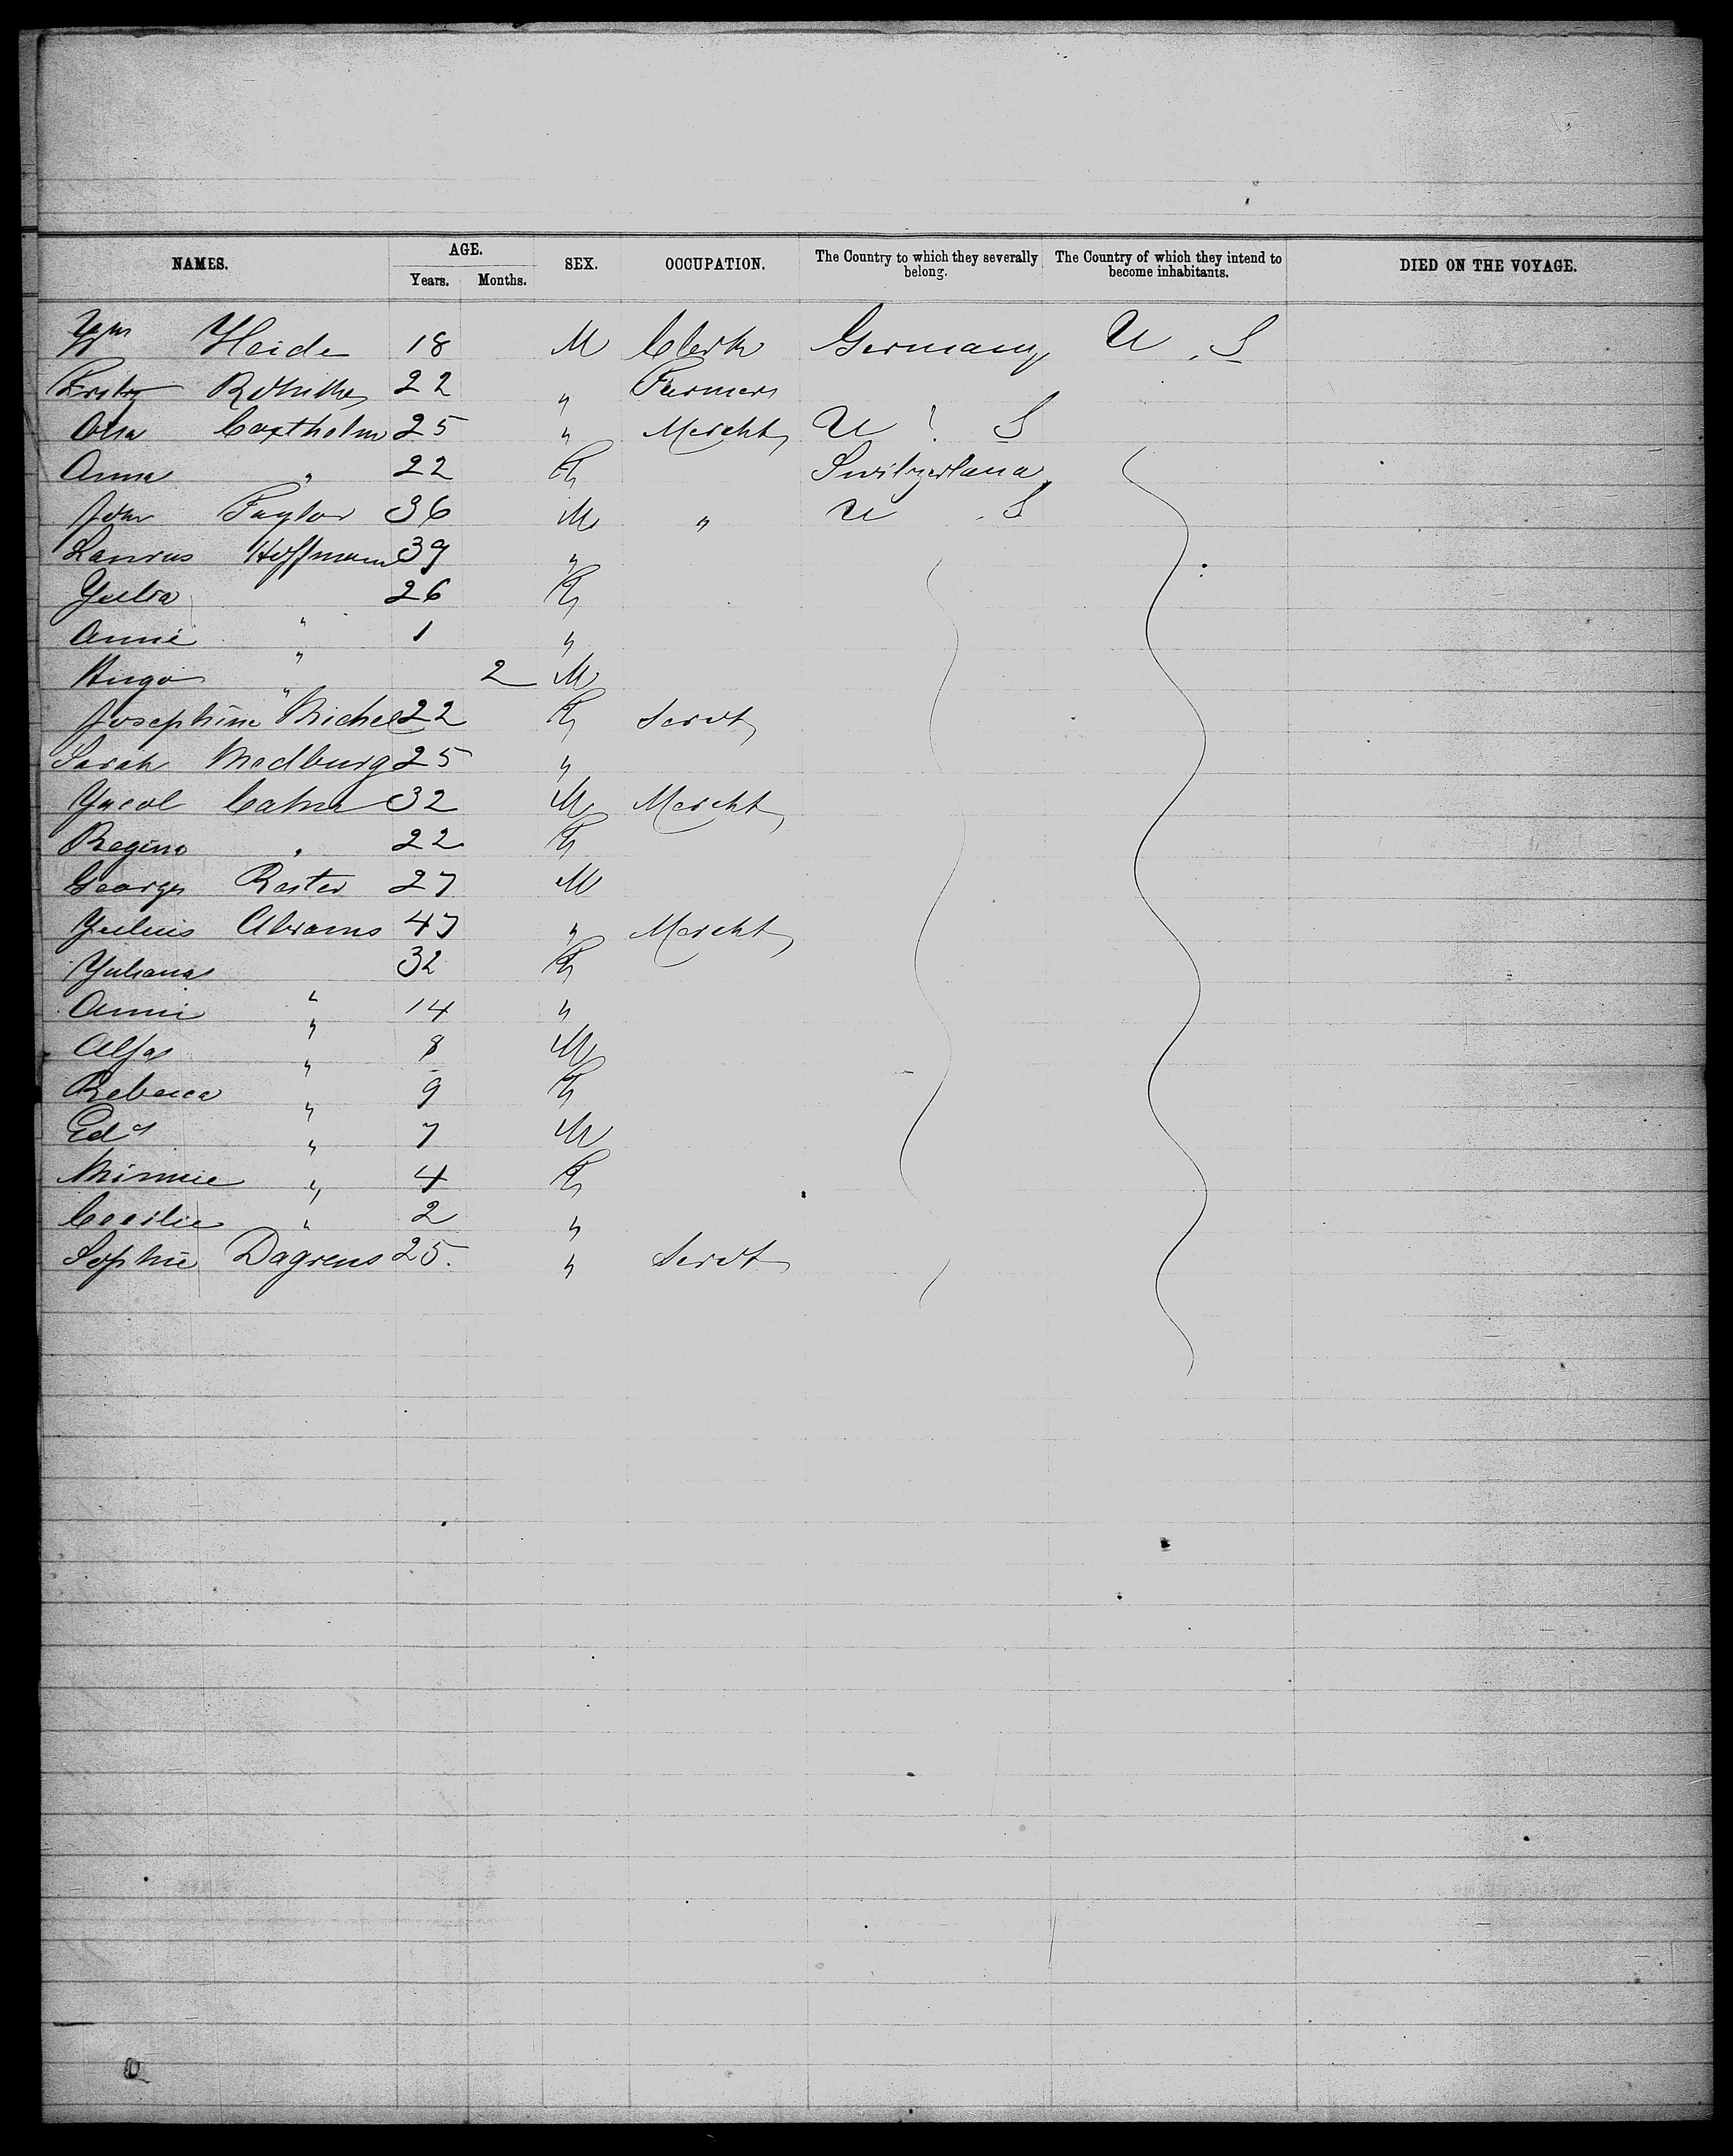 NAMES. AGE. SEX. OCCUPATION. The Country to which they severally belong. The Country of which they intend to become inhabitants. DIED ON THE VOYAGE.
Years. Months.
Wm Heide 18 M Clerk Germany U. S
22 " Farmer
25 " Mercht U S
Anna " 22 F Switzerland
John Taylor 36 M " U. S
Hoffmann 39 "
Julia " 26 F
Annie " 1 "
Hugo " 2 M
Josephine Michel 22 F Servt
Sarah Medburg 25 "
Jacob Cahn 32 M Mercht
Regina " 22 F
George Rester 27 M
Julius Abrams 47 " Mercht
Juliana " 32 F
Annie " 14 "
" 8 M
Rebecca " 9 F
Edd " 7 M
Minnie " 4 F
Cecilie " 2 "
Sophie Dagrens 25. " Servt